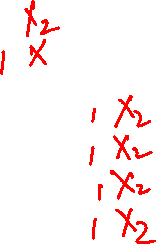 X₂
1 X
1 X₂
1 X₂
1 X₂
1 X₂